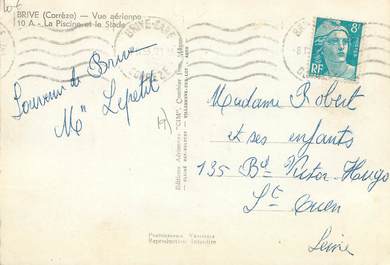 BRIVE (Corrèze) — Vue aérienne
10 A - La Piscine et le Stade
BRIVE-GARE
CORRÈZE
8F
RF
Souvenir de Brive
Mlle Lepetit
Madame Robert
et ses enfants
135 Bd Victor-Hugo
St Ouen
Seine
Editions Aériennes "CIM", Combier Imp. Mâcon
Photographie Véritable
Reproduction Interdite